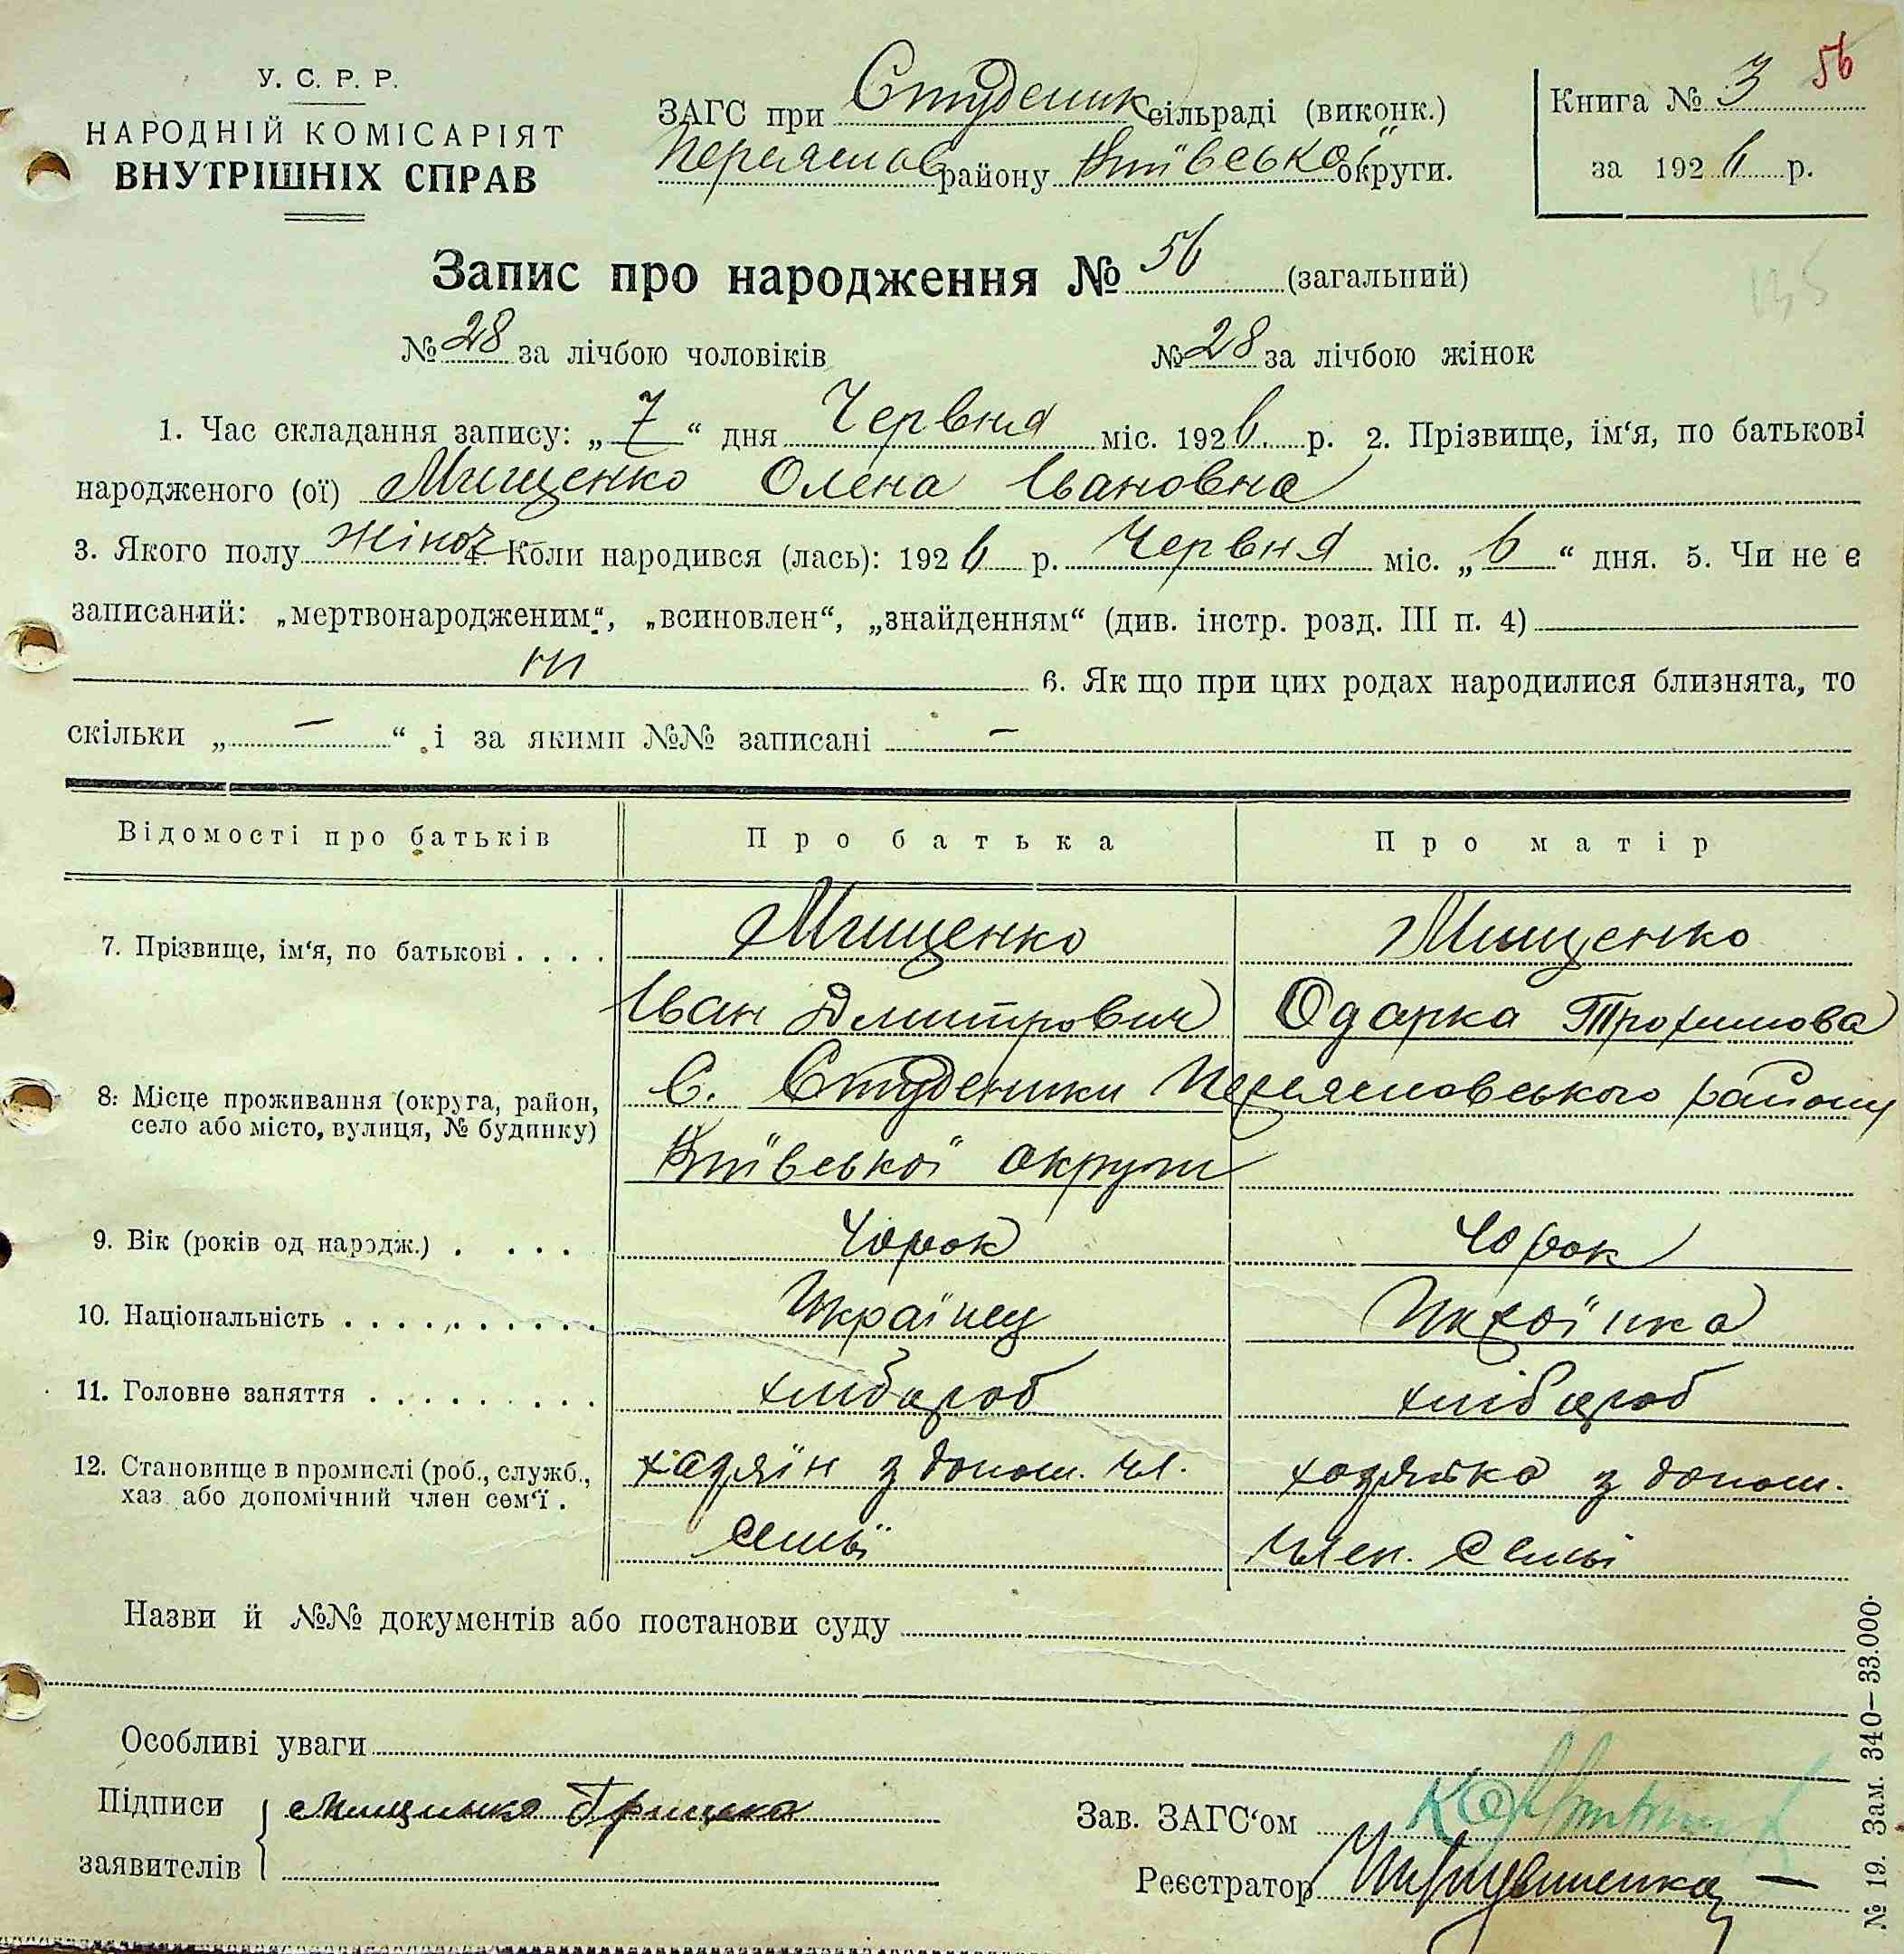 У. С. Р. Р.
НАРОДНІЙ КОМІСАРІЯТ
ВНУТРІШНІХ СПРАВ
ЗАГС при Студеник сільраді (виконк.)
Переяслов району Київської округи.
Книга № 3 56
за 1926 р.
Запис про народження № 56 (загальний)
№ 28 за лічбою чоловіків № 28 за лічбою жінок
1. Час складання запису: „ 7 “ дня Червня міс. 1926 р. 2. Прізвище, ім‘я, по батькові
народженого (ої) Мищенко Олена Івановна
3. Якого полу жіноч 4. Коли народився (лась): 1926 р. Червня міс. „ 6 “ дня. 5. Чи не є
записаний: „мертвонародженим“, „всиновлен“, „знайденням“ (див. інстр. розд. III п. 4)
ні 6. Як що при цих родах народилися близнята, то
скільки „ — “ і за якими №№ записані —
Відомості про батьків Про батька Про матір
7. Прізвище, ім‘я, по батькові . . . . Мищенко Мищенко
Іван Дмитрович Одарка Трохимова
8. Місце проживання (округа, район, С. Студеники Переясловського району
село або місто, вулиця, № будинку)
Київської округи
9. Вік (років од народж.) . . . . 40 рок 40 рок
10. Національність . . . . . . . . . . Українец Українка
11. Головне заняття . . . . . . . . . хлібароб хлібароб
12. Становище в промислі (роб., служб., хазяїн з допом. чл. хазяйка з допом.
хаз. або допомічний член сем‘ї .
семьї член. семьї
Назви й №№ документів або постанови суду
Особливі уваги
Підписи Мищенко Зав. ЗАГС‘ом
заявителів Реєстратор
№ 19. Зам. 340—33.000.